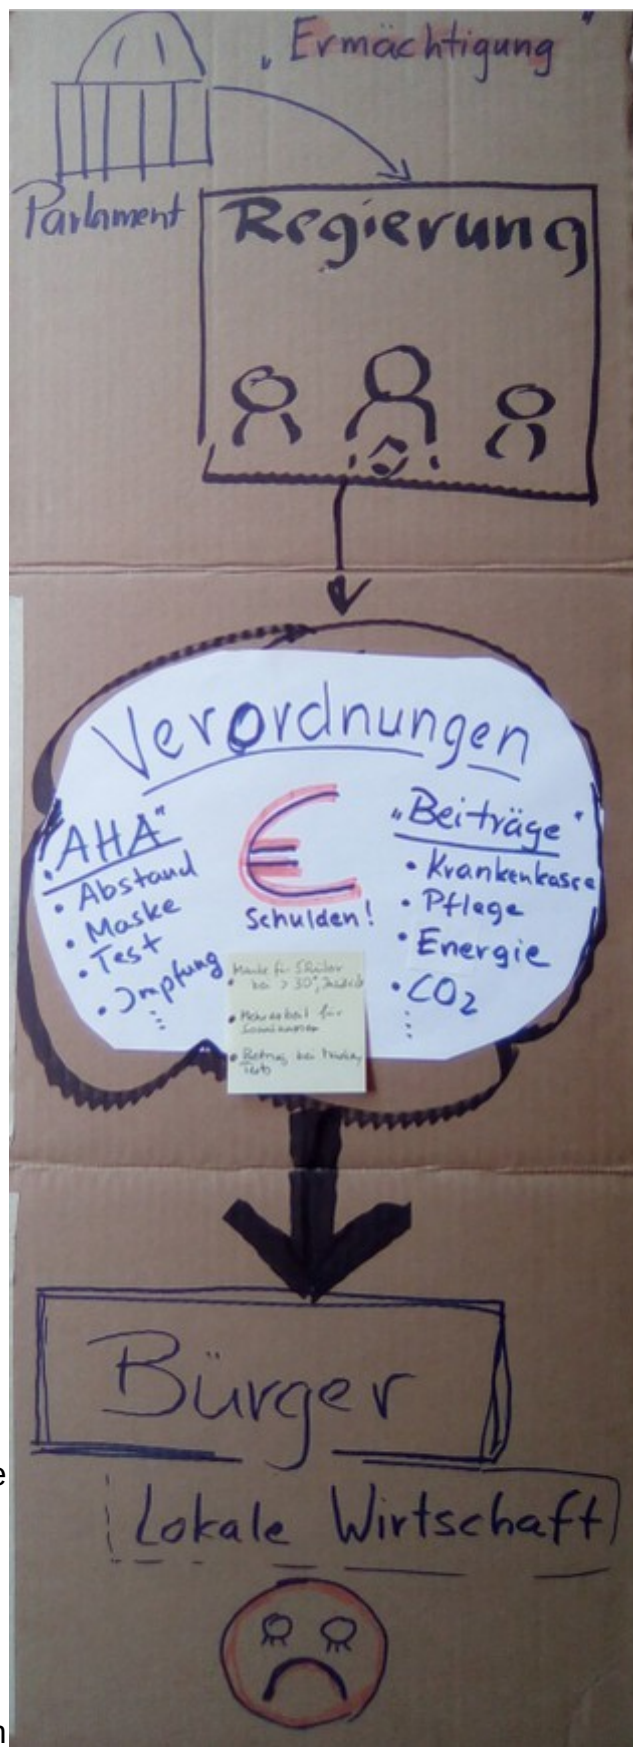 „Ermächtigung"
Parlament
Regierung
Verordnungen
„AHA"
• Abstand
• Maske
• Test
• Impfung
⋮
€
Schulden!
„Beiträge"
• Krankenkasse
• Pflege
• Energie
• CO2
⋮
Maske für Schüler
bei > 30°,
• Mehrarbeit für
• Betrug bei
Tests
Bürger
Lokale Wirtschaft
e
n